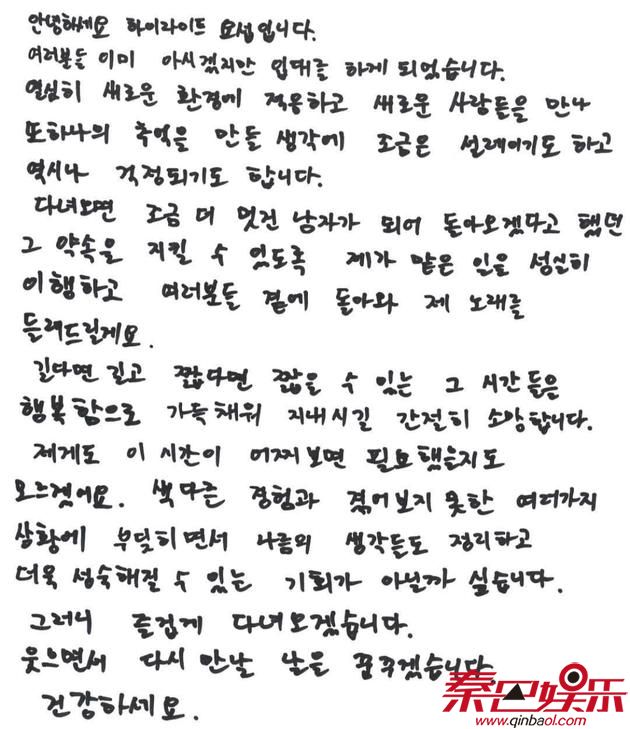 안녕하세요 하이라이트 요섭입니다.
여러분들 이미 아시겠지만 입대를 하게 되었습니다.
열심히 새로운 환경에 적응하고 새로운 사람들을 만나
또하나의 추억을 만들 생각에 조금은 설레이기도 하고
역시나 걱정되기도 합니다.
다녀오면 조금 더 멋진 남자가 되어 돌아오겠다고 했던
그 약속을 지킬 수 있도록 제가 맡은 일을 성실히
이행하고 여러분들 곁에 돌아와 제 노래를
들려드릴게요.
길다면 길고 짧다면 짧을 수 있는 그 시간들은
행복함으로 가득채워 지내시길 간절히 소망합니다.
제게도 이 시간이 어찌보면 필요했을지도
모르겠어요. 색다른 경험과 겪어보지 못한 여러가지
상황에 부딪히면서 나름의 생각들도 정리하고
더욱 성숙해질 수 있는 기회가 아닐까 싶습니다.
그러니 즐겁게 다녀오겠습니다.
웃으면서 다시 만날 날을 꿈꾸겠습니다.
건강하세요.
秦巴娱乐
www.qinbaol.com